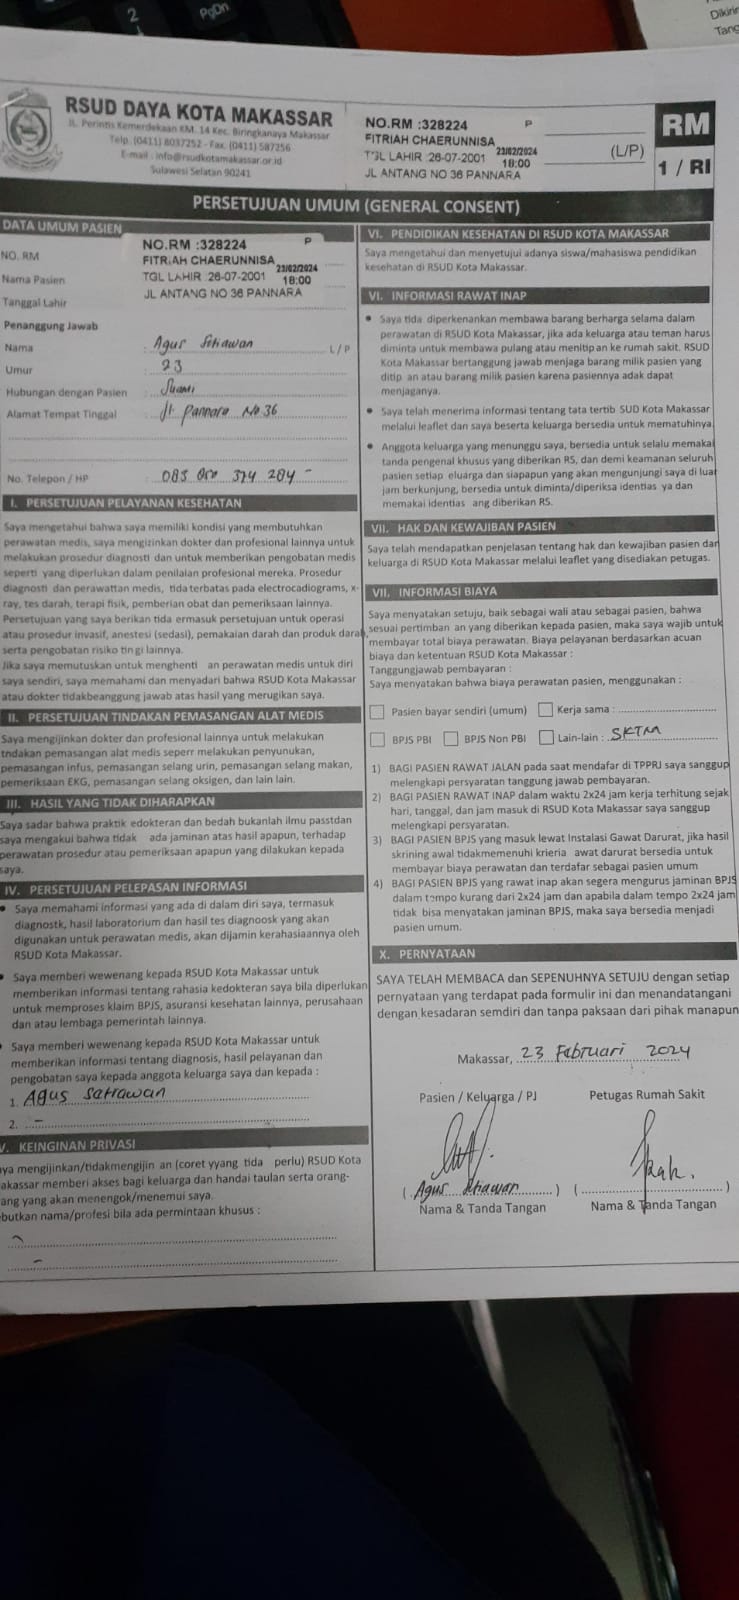 2
PgDn
Dikirim
Tang
RSUD DAYA KOTA MAKASSAR
JL. Perintis Kemerdekaan KM. 14 Kec. Biringkanaya Makassar
Telp. (0411) 8037252 - Fax. (0411) 587256
E-mail : info@rsudkotamakassar.or.id
Sulawesi Selatan 90241
NO.RM :328224 P
FITRIAH CHAERUNNISA
TGL LAHIR :26-07-2001 23/02/2024 18:00
JL ANTANG NO 36 PANNARA
(L/P)
RM
1 / RI
PERSETUJUAN UMUM (GENERAL CONSENT)
DATA UMUM PASIEN
NO. RM
Nama Pasien
Tanggal Lahir
NO.RM :328224 P
FITRIAH CHAERUNNISA
TGL LAHIR :26-07-2001 23/02/2024 18:00
JL ANTANG NO 36 PANNARA
Penanggung Jawab
Nama : Agus Setiawan L/P
Umur : 23
Hubungan dengan Pasien : Suami
Alamat Tempat Tinggal : Jl. Pannara No 36
No. Telepon / HP : 374 284
I. PERSETUJUAN PELAYANAN KESEHATAN
Saya mengetahui bahwa saya memiliki kondisi yang membutuhkan
perawatan medis, saya mengizinkan dokter dan profesional lainnya untuk
melakukan prosedur diagnosti dan untuk memberikan pengobatan medis
seperti yang diperlukan dalam penilaian profesional mereka. Prosedur
diagnosti dan perawattan medis, tida terbatas pada electrocadiograms, x-
ray, tes darah, terapi fisik, pemberian obat dan pemeriksaan lainnya.
Persetujuan yang saya berikan tida ermasuk persetujuan untuk operasi
atau prosedur invasif, anestesi (sedasi), pemakaian darah dan produk darah,
serta pengobatan risiko tin gi lainnya.
Jika saya memutuskan untuk menghenti an perawatan medis untuk diri
saya sendiri, saya memahami dan menyadari bahwa RSUD Kota Makassar
atau dokter tidakbeanggung jawab atas hasil yang merugikan saya.
II. PERSETUJUAN TINDAKAN PEMASANGAN ALAT MEDIS
Saya mengijinkan dokter dan profesional lainnya untuk melakukan
tndakan pemasangan alat medis seperr melakukan penyunukan,
pemasangan infus, pemasangan selang urin, pemasangan selang makan,
pemeriksaan EKG, pemasangan selang oksigen, dan lain lain.
III. HASIL YANG TIDAK DIHARAPKAN
Saya sadar bahwa praktik edokteran dan bedah bukanlah ilmu passtdan
saya mengakui bahwa tidak ada jaminan atas hasil apapun, terhadap
perawatan prosedur atau pemeriksaan apapun yang dilakukan kepada
saya.
IV. PERSETUJUAN PELEPASAN INFORMASI
• Saya memahami informasi yang ada di dalam diri saya, termasuk
diagnostk, hasil laboratorium dan hasil tes diagnoosk yang akan
digunakan untuk perawatan medis, akan dijamin kerahasiaannya oleh
RSUD Kota Makassar.
• Saya memberi wewenang kepada RSUD Kota Makassar untuk
memberikan informasi tentang rahasia kedokteran saya bila diperlukan
untuk memproses klaim BPJS, asuransi kesehatan lainnya, perusahaan
dan atau lembaga pemerintah lainnya.
• Saya memberi wewenang kepada RSUD Kota Makassar untuk
memberikan informasi tentang diagnosis, hasil pelayanan dan
pengobatan saya kepada anggota keluarga saya dan kepada :
1. Agus Satiawan
2. -
V. KEINGINAN PRIVASI
aya mengijinkan/tidakmengijin an (coret yyang tida perlu) RSUD Kota
akassar memberi akses bagi keluarga dan handai taulan serta orang-
ang yang akan menengok/menemui saya.
butkan nama/profesi bila ada permintaan khusus :
VI. PENDIDIKAN KESEHATAN DI RSUD KOTA MAKASSAR
Saya mengetahui dan menyetujui adanya siswa/mahasiswa pendidikan
kesehatan di RSUD Kota Makassar.
VI. INFORMASI RAWAT INAP
• Saya tida diperkenankan membawa barang berharga selama dalam
perawatan di RSUD Kota Makassar, jika ada keluarga atau teman harus
diminta untuk membawa pulang atau menitip an ke rumah sakit. RSUD
Kota Makassar bertanggung jawab menjaga barang milik pasien yang
ditip an atau barang milik pasien karena pasiennya adak dapat
menjaganya.
• Saya telah menerima informasi tentang tata tertib SUD Kota Makassar
melalui leaflet dan saya beserta keluarga bersedia untuk mematuhinya.
• Anggota keluarga yang menunggu saya, bersedia untuk selalu memakai
tanda pengenal khusus yang diberikan RS, dan demi keamanan seluruh
pasien setiap eluarga dan siapapun yang akan mengunjungi saya di luar
jam berkunjung, bersedia untuk diminta/diperiksa identias ya dan
memakai identias ang diberikan RS.
VII. HAK DAN KEWAJIBAN PASIEN
Saya telah mendapatkan penjelasan tentang hak dan kewajiban pasien dan
keluarga di RSUD Kota Makassar melalui leaflet yang disediakan petugas.
VII. INFORMASI BIAYA
Saya menyatakan setuju, baik sebagai wali atau sebagai pasien, bahwa
sesuai pertimban an yang diberikan kepada pasien, maka saya wajib untuk
membayar total biaya perawatan. Biaya pelayanan berdasarkan acuan
biaya dan ketentuan RSUD Kota Makassar :
Tanggungjawab pembayaran :
Saya menyatakan bahwa biaya perawatan pasien, menggunakan :
Pasien bayar sendiri (umum) Kerja sama :
BPJS PBI BPJS Non PBI Lain-lain : SKTM
1) BAGI PASIEN RAWAT JALAN pada saat mendafar di TPPRJ saya sanggup
melengkapi persyaratan tanggung jawab pembayaran.
2) BAGI PASIEN RAWAT INAP dalam waktu 2x24 jam kerja terhitung sejak
hari, tanggal, dan jam masuk di RSUD Kota Makassar saya sanggup
melengkapi persyaratan.
3) BAGI PASIEN BPJS yang masuk lewat Instalasi Gawat Darurat, jika hasil
skrining awal tidakmemenuhi krieria awat darurat bersedia untuk
membayar biaya perawatan dan terdafar sebagai pasien umum
4) BAGI PASIEN BPJS yang rawat inap akan segera mengurus jaminan BPJS
dalam tempo kurang dari 2x24 jam dan apabila dalam tempo 2x24 jam
tidak bisa menyatakan jaminan BPJS, maka saya bersedia menjadi
pasien umum.
X. PERNYATAAN
SAYA TELAH MEMBACA dan SEPENUHNYA SETUJU dengan setiap
pernyataan yang terdapat pada formulir ini dan menandatangani
dengan kesadaran semdiri dan tanpa paksaan dari pihak manapun
Makassar, 23 Februari 2024
Pasien / Keluarga / PJ Petugas Rumah Sakit
( Agus Setiawan ) ( )
Nama & Tanda Tangan Nama & Tanda Tangan